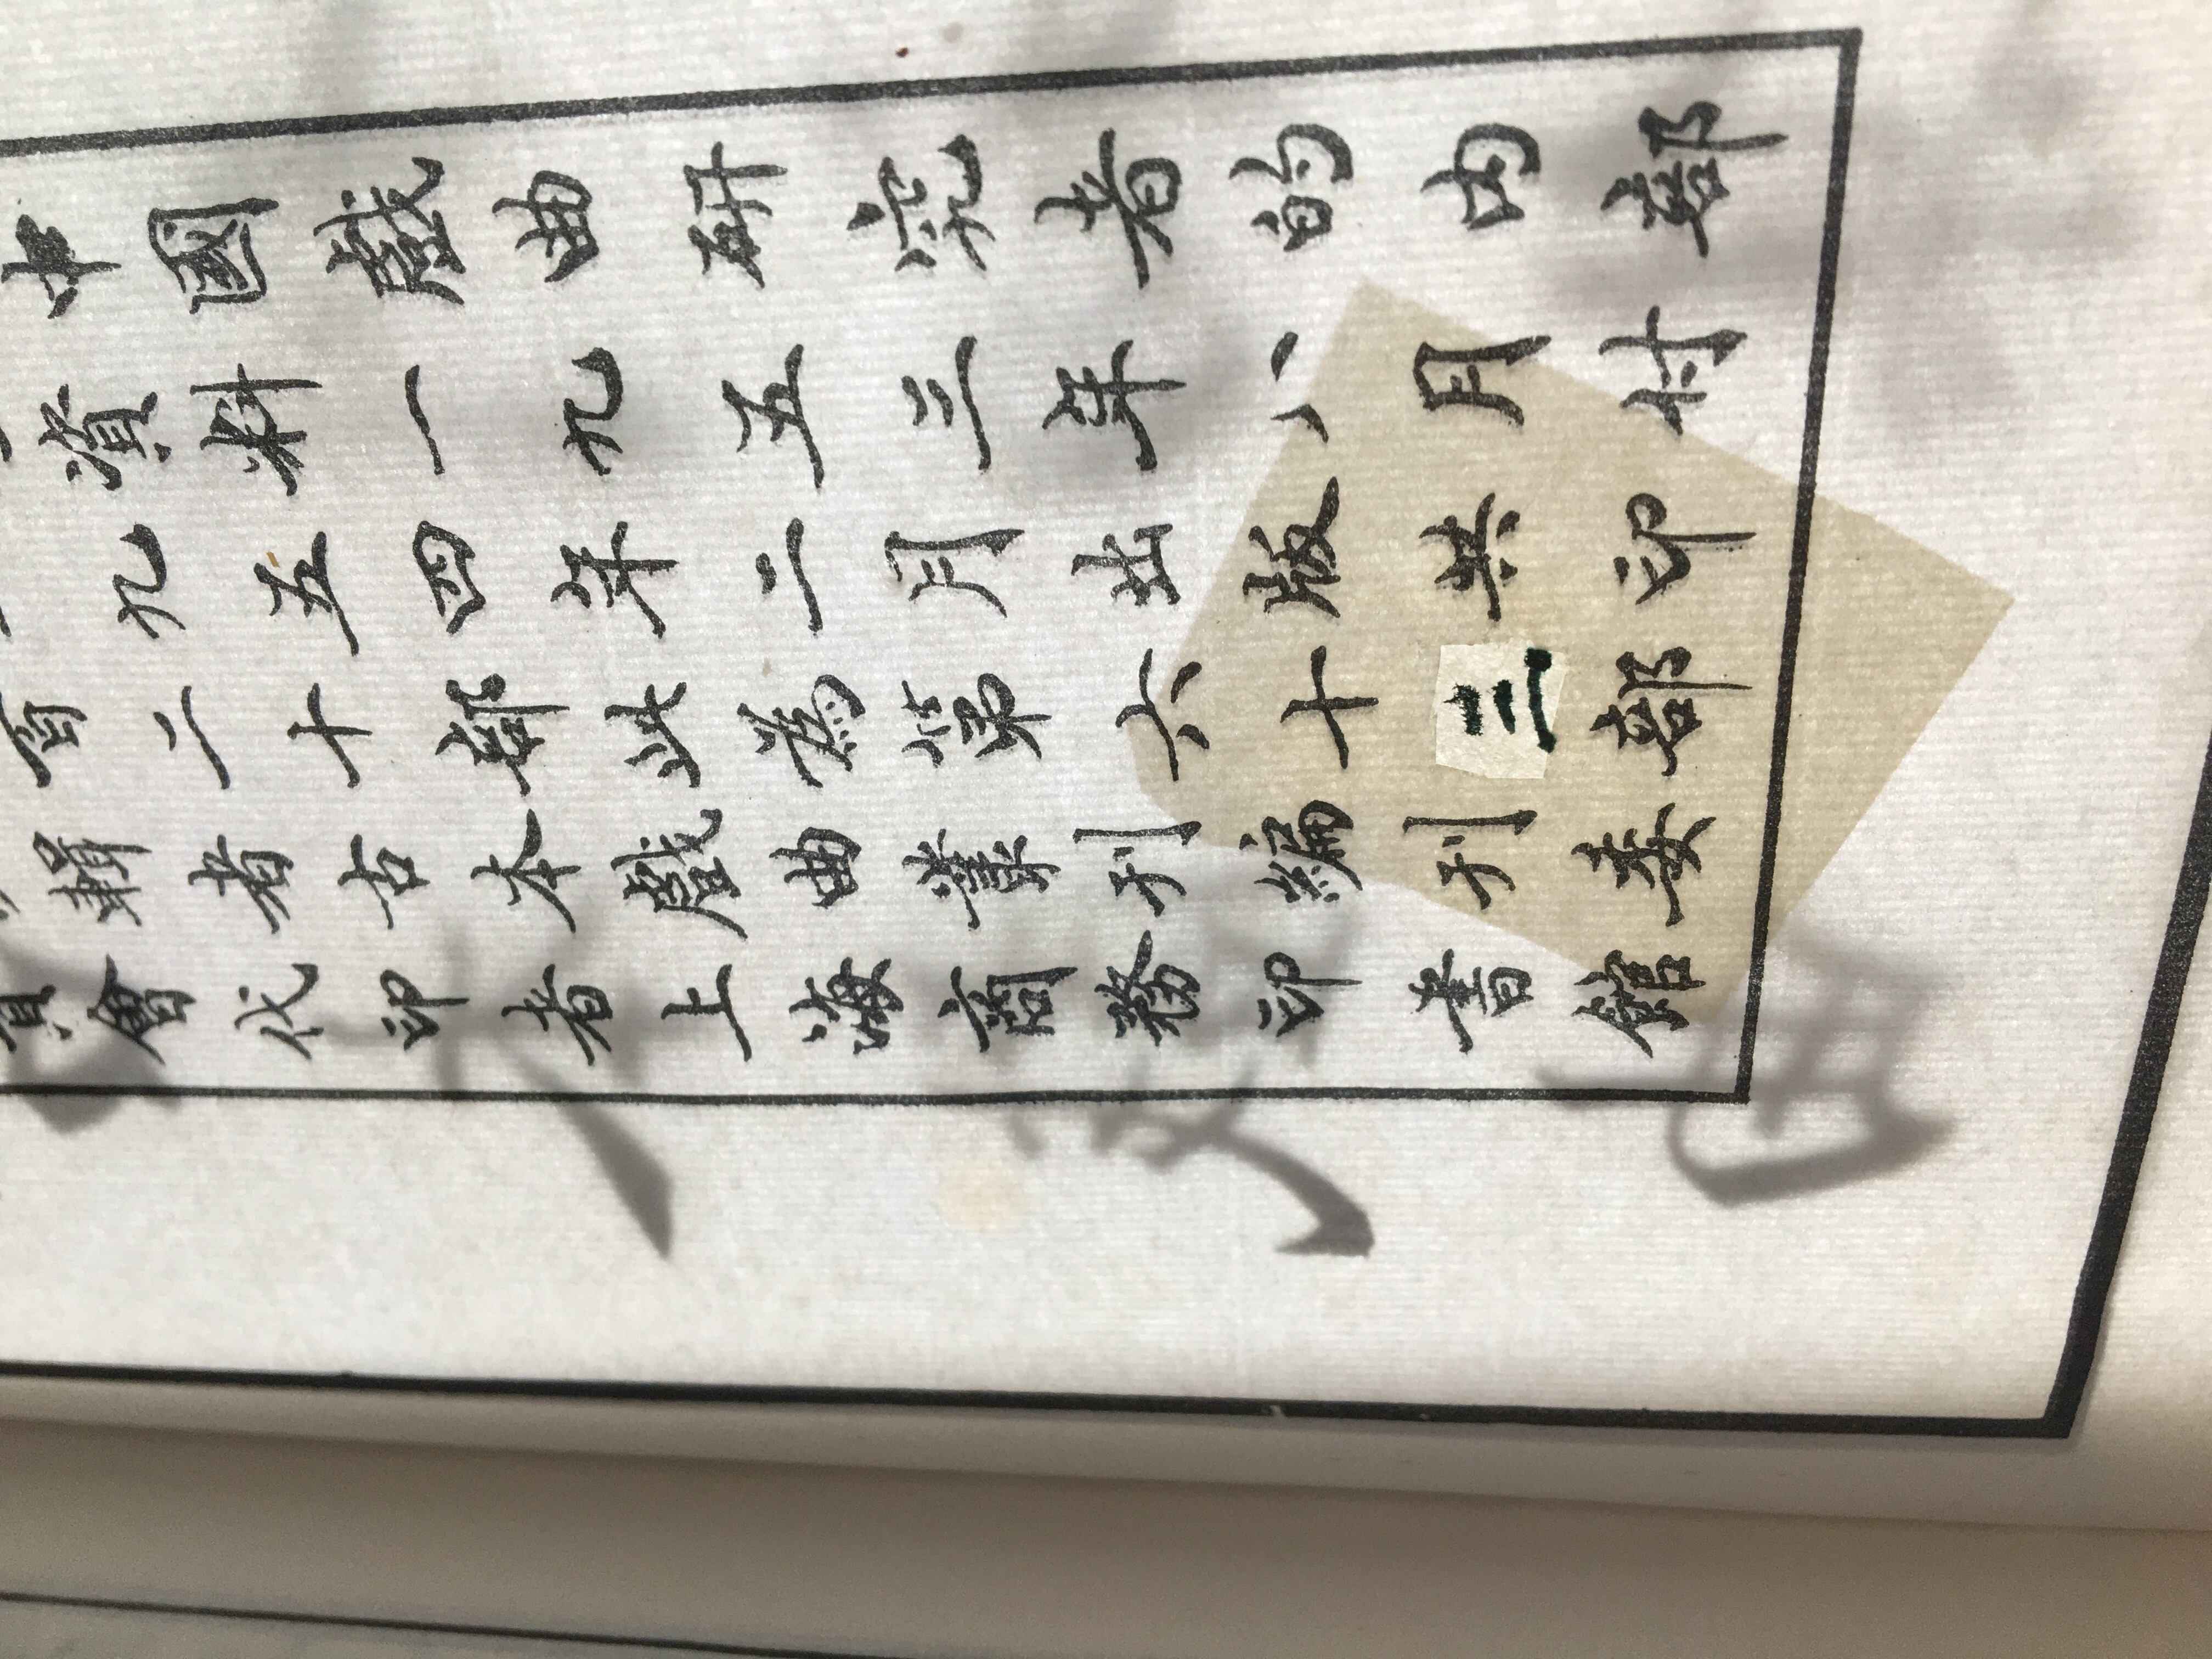 中國戲曲研究者的内部
資料一九五三年八月付
九五四年二月出版共印
百二十部此為第六十三部
輯者古本戲曲叢刊編刊委
員會代印者上海商務印書館